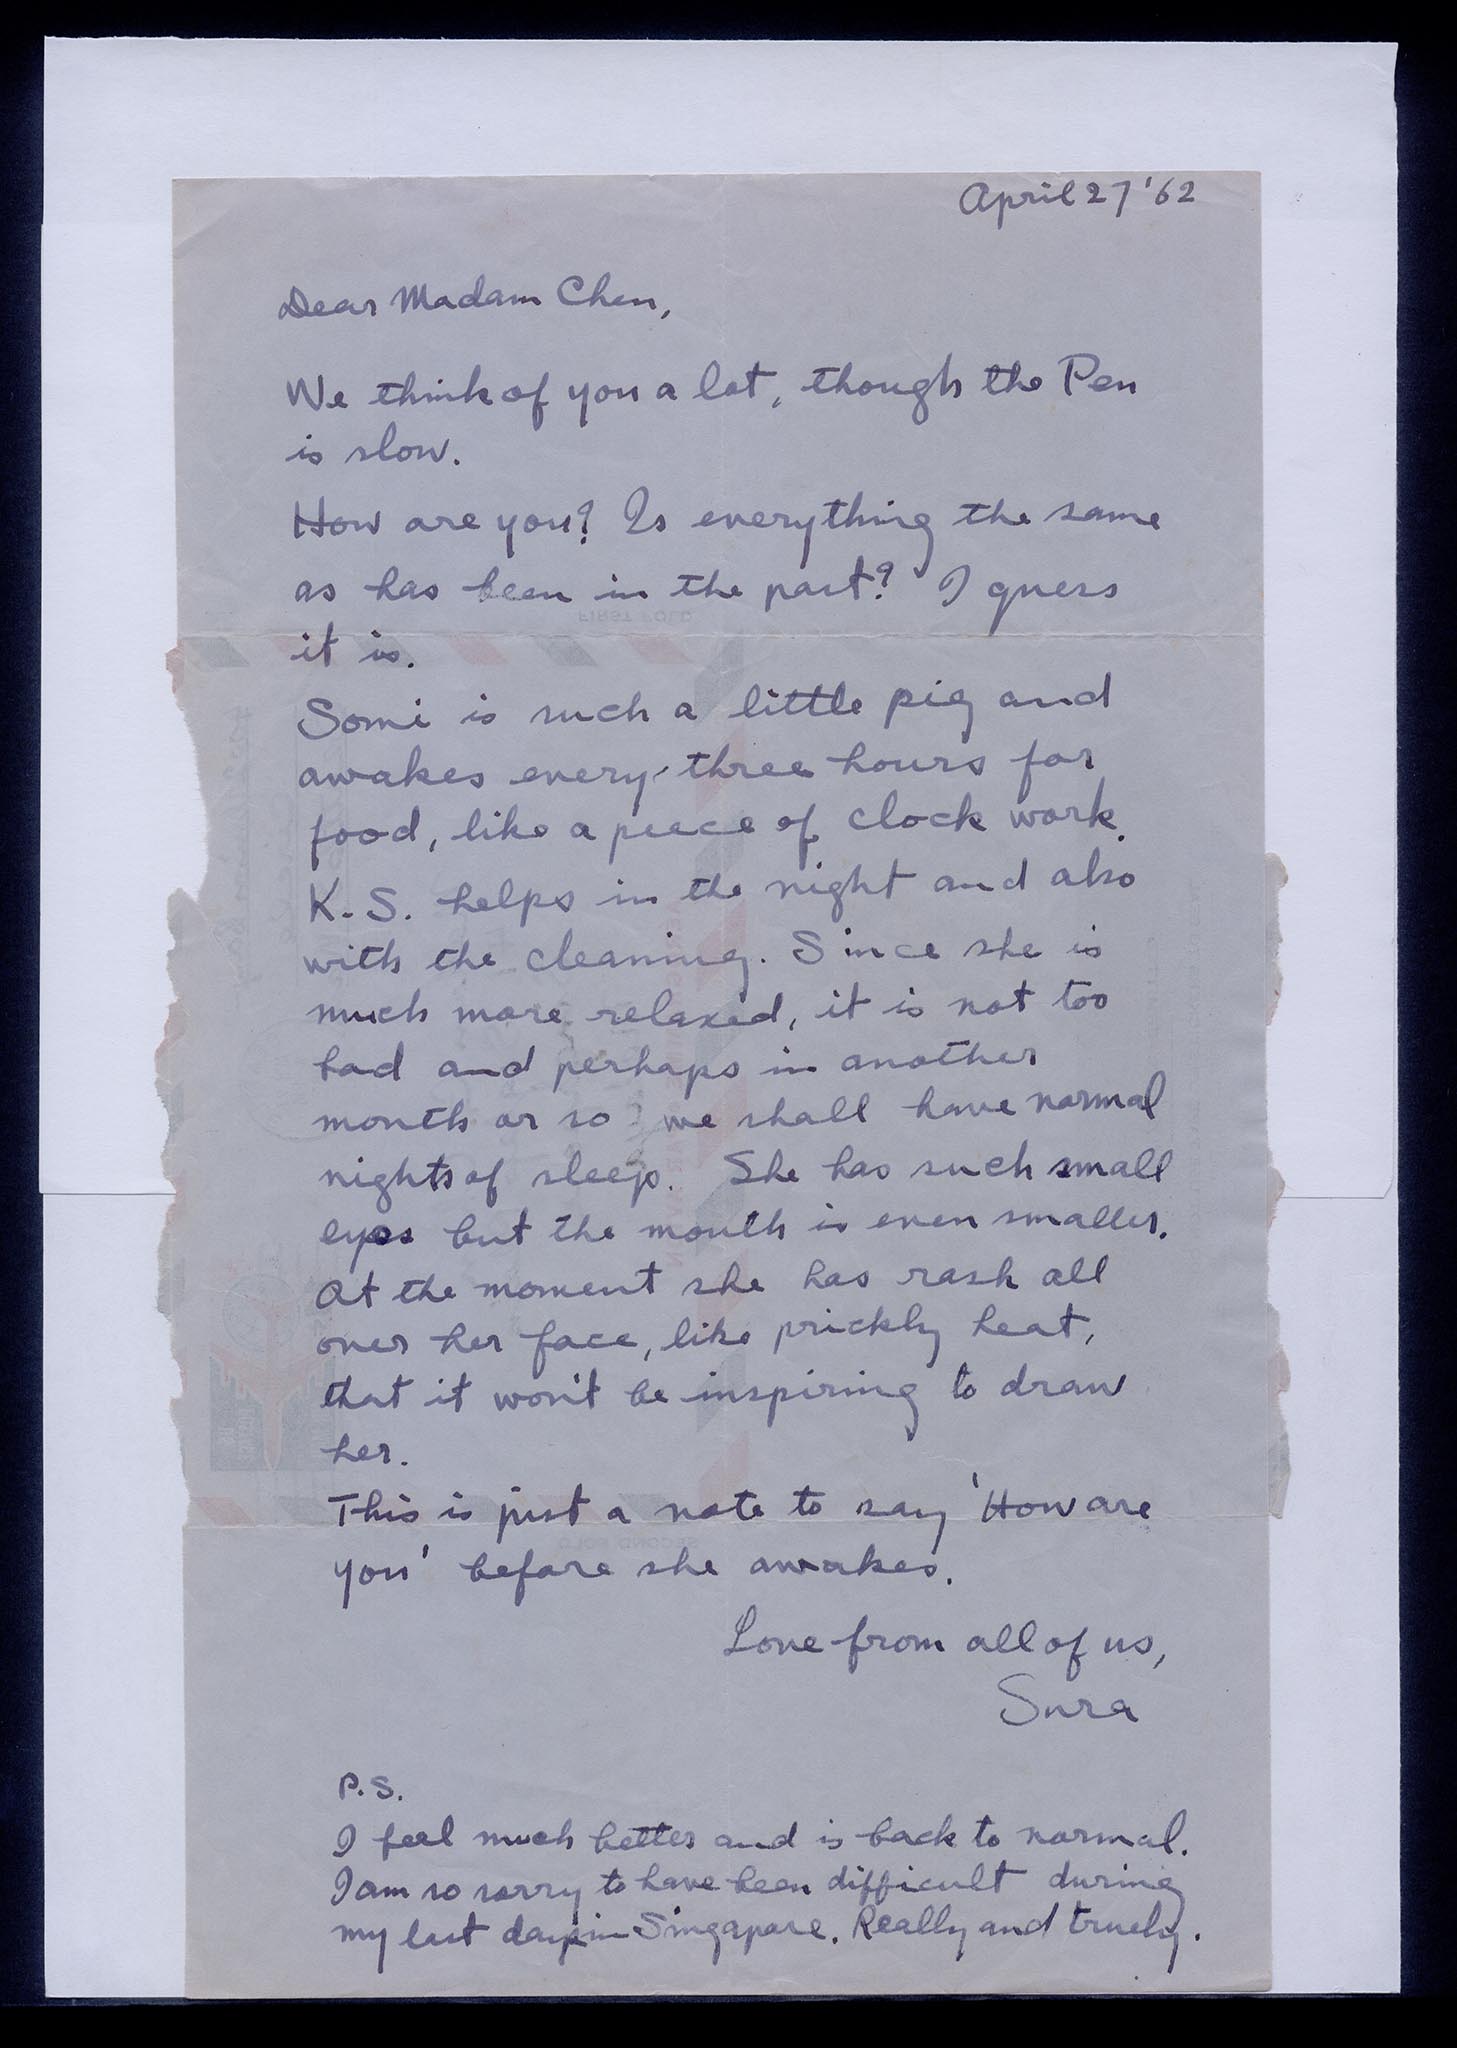 April 27 '62
Dear Madam Chen,
We think of you a lot, though the Pen
is slow.
How are you? Is everything the same
as has been in the past? I guess
it is.
Somi is such a little pig and
awakes every three hours for
food, like a peece of clock work.
K.S. helps in the night and also
with the cleaning. Since she is
much more relaxed, it is not too
bad and perhaps in another
month or so we shall have normal
nights of sleep. She has such small
eyes but the mouth is even smaller.
At the moment she has rash all
over her face, like prickly heat,
that it won't be inspiring to draw
her.
This is just a note to say 'How are
you' before she awakes.
Love from all of us,
Sura
P.S.
I feel much better and is back to normal.
I am so sorry to have been difficult during
my last days in Singapore. Really and truely.
FIRST FOLD
SECOND FOLD